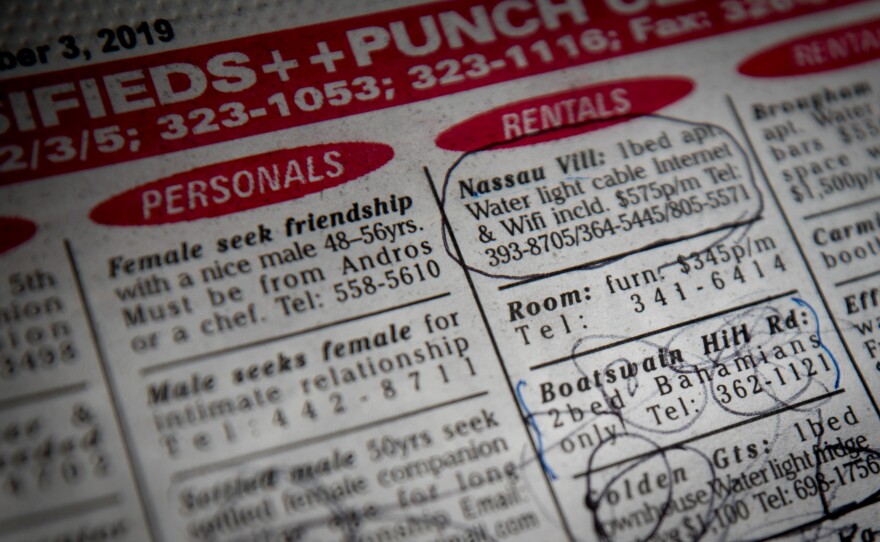 ber 3, 2019
SIFIEDS++PUNCH
2/3/5; 323-1053; 323-1116; Fax:
5th
PERSONALS
Female seek friendship
with a nice male 48–56yrs.
Must be from Andros
or a chef. Tel: 558-5610
Male seeks female for
intimate relationship
Tel: 442-8711
Settled male 50yrs seek
settled female companion
for long
Email:
RENTALS
Nassau Vill: 1bed apt
Water light cable Internet
& Wifi incld. $575p/m Tel:
393-8705/364-5445/805-5571
Room: furn. $345p/m
Tel: 341-6414
Boatswain Hill Rd:
2bed Bahamians
only Tel: 362-1121
Golden Gts: 1bed
townhouse Water light fridge
$1,100 Tel: 698-1756
RENTA
Brougham
apt. Water
bara
space
$1,500p/